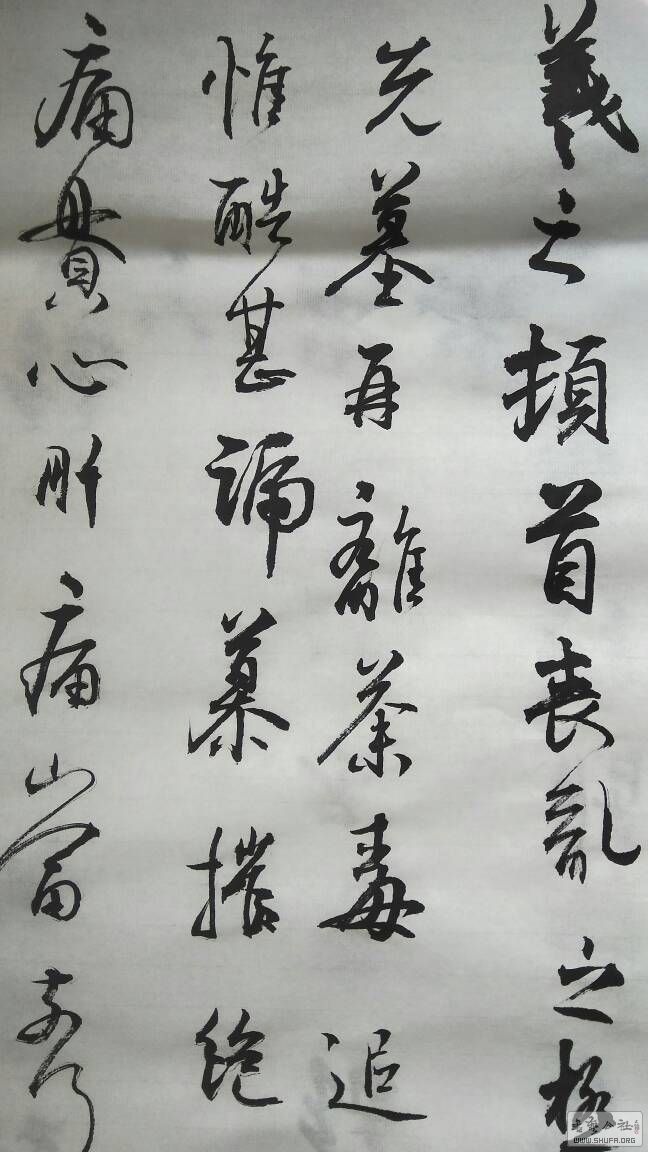 羲之頓首喪亂之極
先墓再離荼毒追
惟酷甚號慕摧絕
痛貫心肝痛當奈何
WWW.SHUFA.ORG